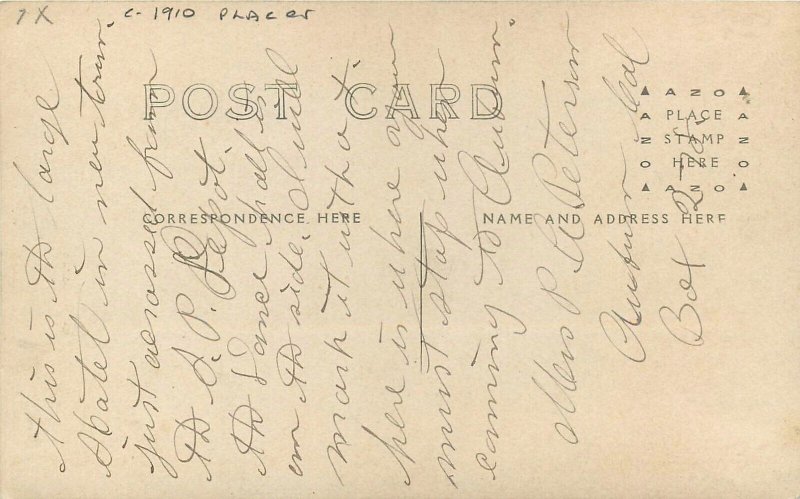 7X
C-1910 PLACER
POST CARD
CORRESPONDENCE HERE
NAME AND ADDRESS HERE
AZO
PLACE
STAMP
HERE
AZO
this is the large
Hotel in new town.
just acrossed from
the S. P. Depot.
the Dance hall is
on the side. I will
mark it with a t.
here is where you
must stop when
coming to Auburn.
Mrs P. C. Peterson
Auburn Cal
Box